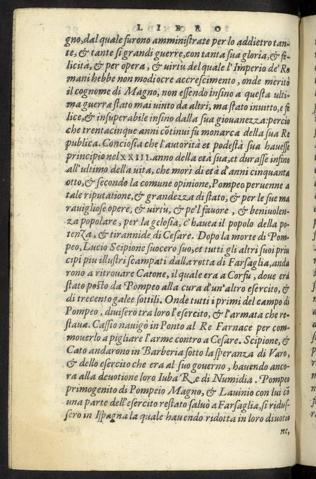 LIBRO
gno, dal quale furono amministrate per lo addietro tan-
te, & tante si grandi guerre, con tanta sua gloria, & fe-
licità, & per opera, & uirtù del quale l'Imperio de' Ro
mani hebbe non mediocre accrescimento, onde meritò
il cognome di Magno, non essendo insino a questa ulti-
ma guerra stato mai uinto da altri, ma stato inuitto, e fe
lice, & insuperabile insino dalla sua giouanezza: percio
che trentacinque anni cõtinui fu monarca della sua Re
publica. Conciosia che l'autorità et podestà sua hauesse
principio nel XXIII. anno della età sua, et durasse insino
all'ultimo della vita, che morì di età d'anni cinquanta
otto, & secondo la comune opinione, Pompeo peruenne a
tale riputatione, & grandezza di stato, & per le sue ma
rauigliose opere, & uirtù, & pe'l fauore, & beniuolen-
za popolare, per la gelosia, c'hauea il popolo della po-
tenza, & tirannide di Cesare. Dopo la morte di Pom-
peo, Lucio Scipione suocero suo, et tutti gli altri suoi prin
cipi piu illustri scampati dalla rotta di Farsaglia, anda
rono a ritrouare Catone, il quale era a Corfù, doue era
stato posto da Pompeo alla cura d'un'altro esercito, &
di trecento galee sottili. Onde tutti i primi del campo di
Pompeo, diuisero tra loro l'esercito, & l'armata che re-
staua. Cassio nauigò in Ponto al Re Farnace per com-
mouerlo a pigliare l'arme contro a Cesare. Scipione, &
Cato andarono in Barberia sotto la speranza di Varo,
& dello esercito che era al suo gouerno, hauendo anco-
ra alla deuotione loro Iuba Re di Numidia. Pompeo
primogenito di Pompeio Magno, & Lauinio con lui cõ
una parte dell'esercito restato saluò a Farsaglia, si ridus-
sero in Ispagna la quale hauendo ridotta in loro diuotio
ne,